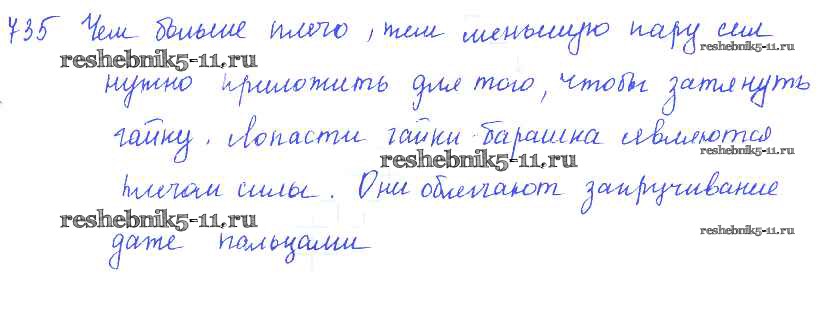 735 Чем больше плечо, тем меньшую пару сил
reshebnik5-11.ru reshebnik5-11.ru
нужно приложить для того, чтобы затянуть
гайку. Лопасти гайки-барашка являются
reshebnik5-11.ru reshebnik5-11.ru
плечом силы. Они облегчают закручивание
reshebnik5-11.ru reshebnik5-11.ru
даже пальцами